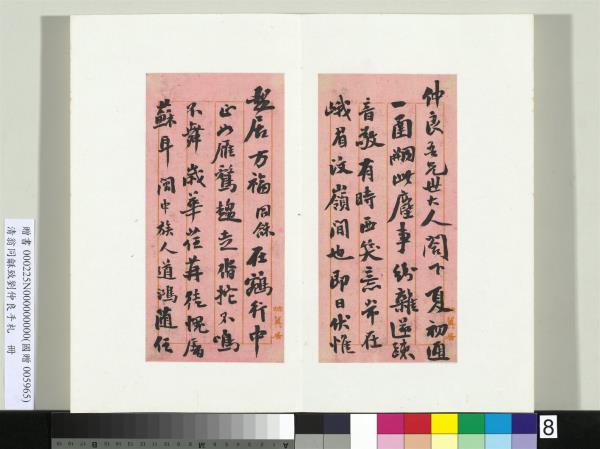 仲良吾兄世大人閣下夏初通
一函嗣此塵事紛雜遂疎
音敬有時西笑意常在
峨眉汶嶺間也即日伏惟
起居万福同龢在鵷行中
正如雁鶩趨走
不舞歲華荏苒徒慨屠
蘇耳閩中族人道鴻随任
贈書 000225N000000000(國贈 005965)
清翁同龢致劉仲良手札 冊
8